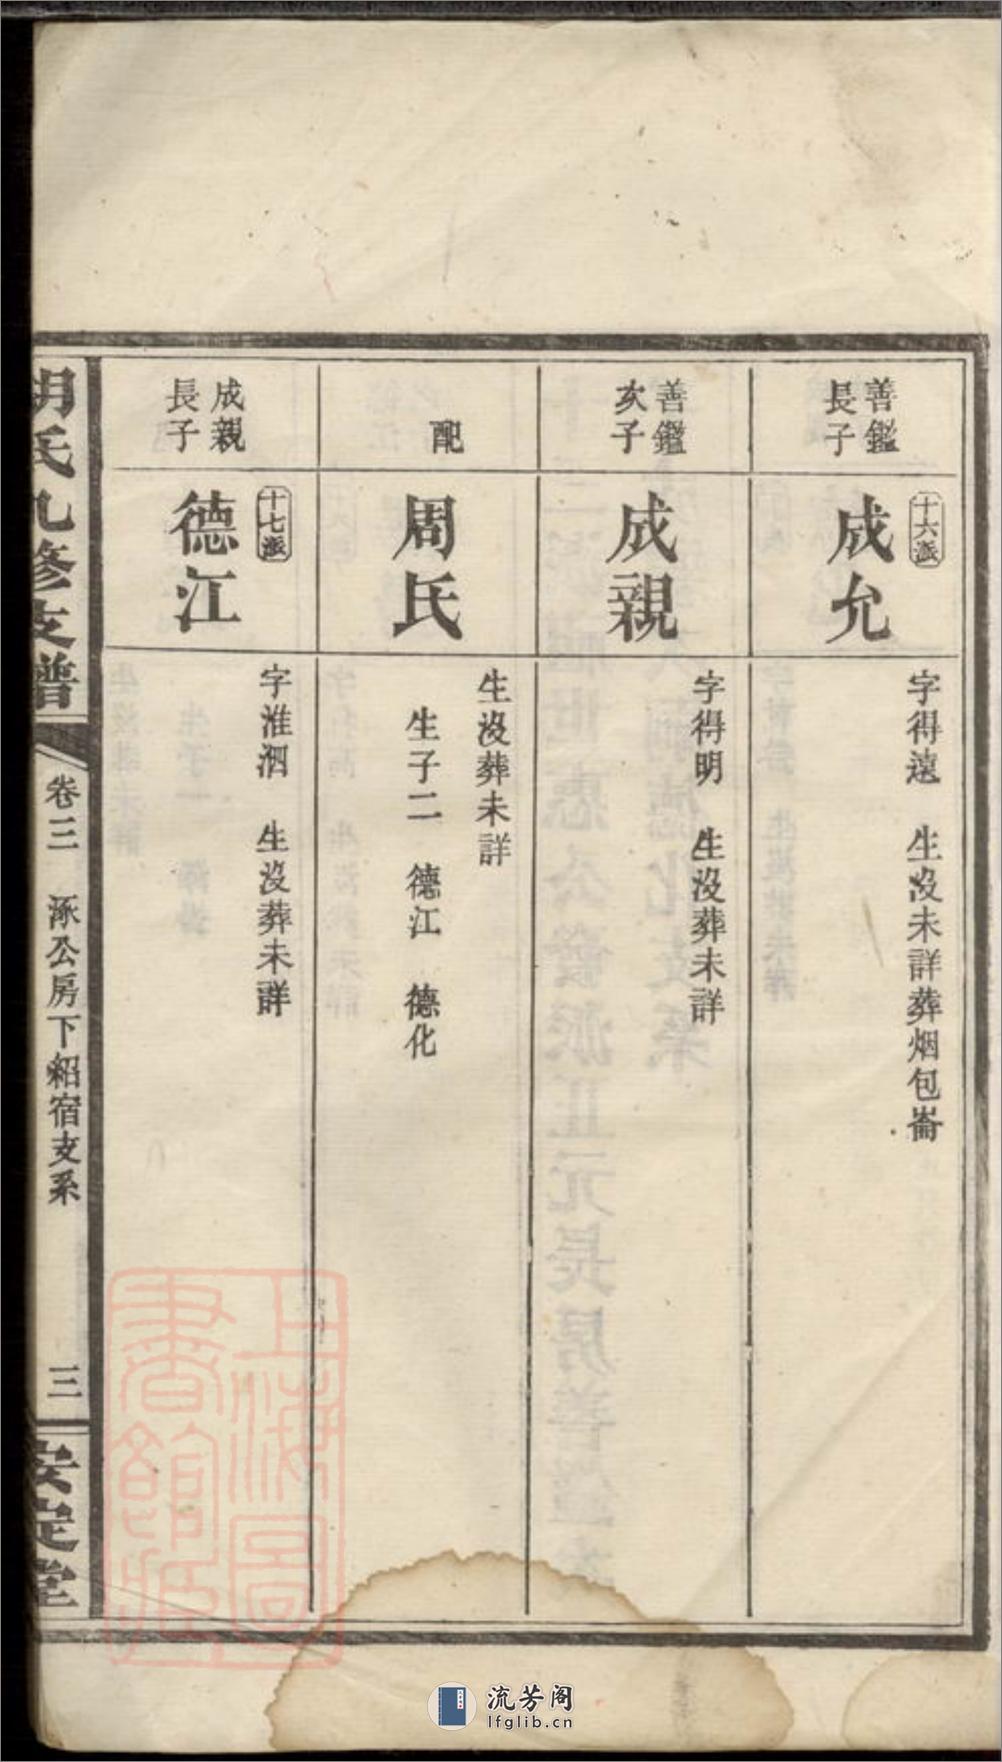 十六派
善鑑
長子
成允
字得遠 生沒未詳葬烟包崙
善鑑
次子
成親
字得明 生沒葬未詳
配
周氏
生沒葬未詳
生子二 德江 德化
十七派
成親
長子
德江
字淮泗 生沒葬未詳
胡氏九修支譜
卷三 涿公房下紹宿支系
三
安定堂
上海圖
書館藏
流芳阁
lfglib.cn